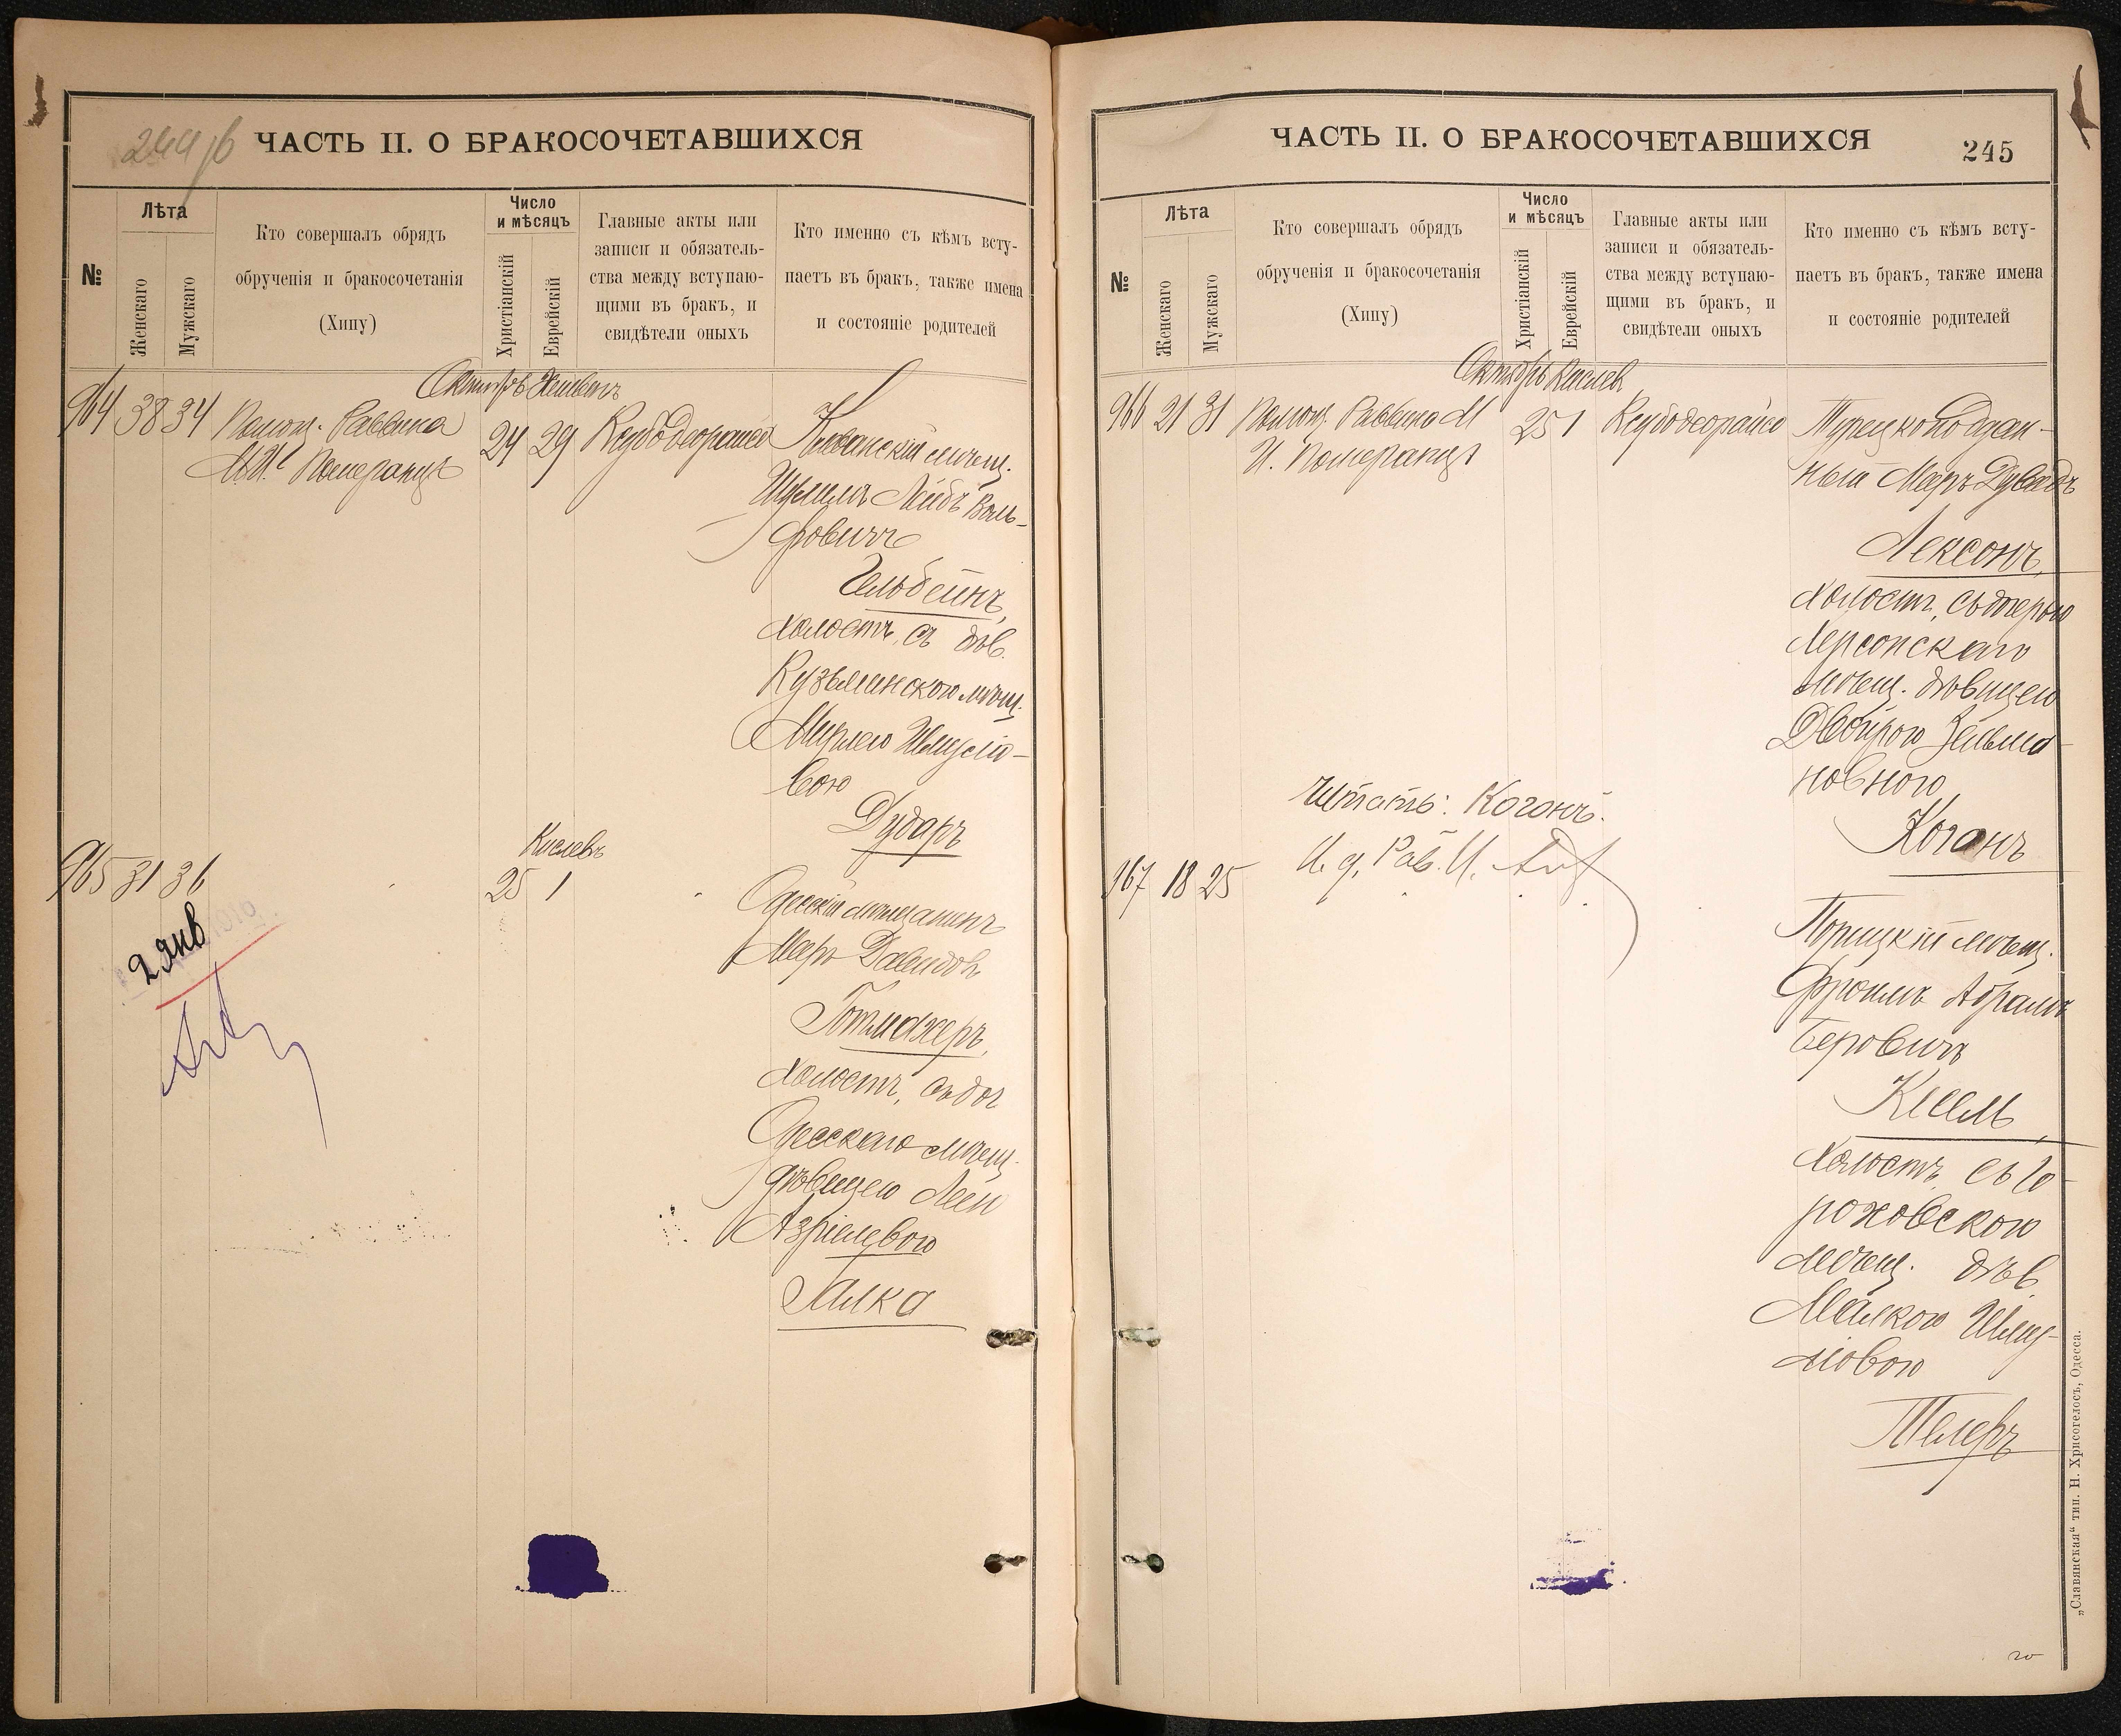 244 об
ЧАСТЬ II. О БРАКОСОЧЕТАВШИХСЯ
№
Лѣта
Женскаго
Мужскаго
Кто совершалъ обрядъ
обрученія и бракосочетанія
(Хипу)
Число
и мѣсяцъ
Христіанскій
Еврейскій
Главные акты или
записи и обязатель-
ства между вступаю-
щими въ бракъ, и
свидѣтели оныхъ
Кто именно съ кѣмъ всту-
паетъ въ бракъ, также имена
и состояніе родителей
Октябрь Хешвенъ
964 38 34 Помощ. Раввина
М. И. Померанцъ
24 29 Ксубо деорайсо
Клеванскій мѣщ.
Шулимъ Лейбъ Воль-
фовичъ
Гельбейнъ,
холостъ, съ дѣв.
Кузьминскою мѣщ.
Мирлею Шмуліо-
вою
Дударъ
Кислевъ
965 31 36
25 1
2 янв
Одесскій мѣщанинъ
Меръ Давидовъ
Готлижеръ,
холостъ, съ доч
Одесскаго мѣщ.
дѣвицею Леей
Азріелевою
Галка
ЧАСТЬ II. О БРАКОСОЧЕТАВШИХСЯ
245
№
Лѣта
Женскаго
Мужскаго
Кто совершалъ обрядъ
обрученія и бракосочетанія
(Хипу)
Число
и мѣсяцъ
Христіанскій
Еврейскій
Главные акты или
записи и обязатель-
ства между вступаю-
щими въ бракъ, и
свидѣтели оныхъ
Кто именно съ кѣмъ всту-
паетъ въ бракъ, также имена
и состояніе родителей
Октябрь Кислев
966 21 31 Помощ. Раввина М
И. Померанцъ
25 1 Ксубо деорайсо
Турецкоподдан-
ный Меръ Дувидъ
Лексонъ,
холостъ, съ дочерью
Херсонскаго
мѣщ. дѣвицею
Двойрою Зейлма-
новною
Коганъ
Читать: Коганъ.
И. д. Рав. И.
967 18 25
Порицкій мѣщ.
Фроимъ Абрамъ
Беровичъ
Кесель,
холостъ, съ Го-
роховскою
мѣщ. дѣв
Малкою Шму-
ліовою
Телеръ
„Славянская" тип. Н. Хрисогелосъ, Одесса.